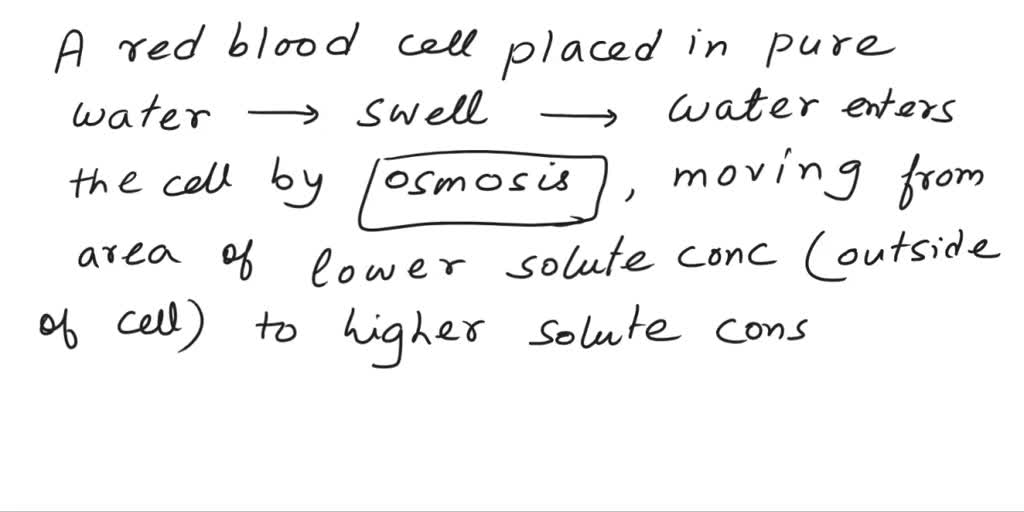 A red blood cell placed in pure
water → swell → water enters
the cell by osmosis, moving from
area of lower solute conc (outside
of cell) to higher solute cons